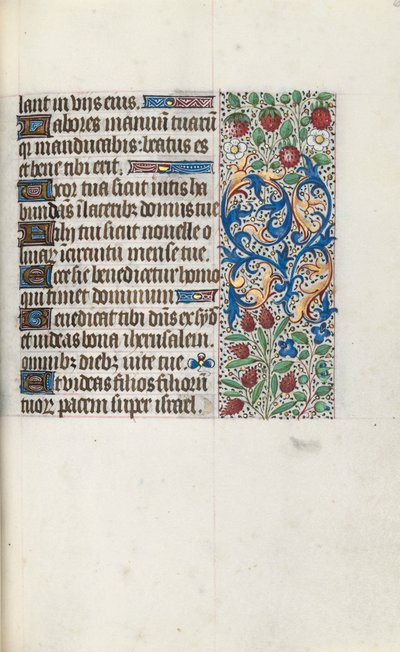 lant in vijs eius.
Labores manuū tuarū
qꝛ manducabis: beatus es
et bene tibi erit.
Uxor tua sicut vitis ha
bundās ī lateribꝫ domus tue
Filij tui sicut nouelle o
liuaꝝ ī circuitu mense tue.
Ecce sic benedicetur homo
qui timet dominum
Benedicat tibi dūs ex syō
et videas bona iherusalem
omnibꝫ diebꝫ vite tue.
Et videas filios filiorū
tuoꝝ pacem super israel.